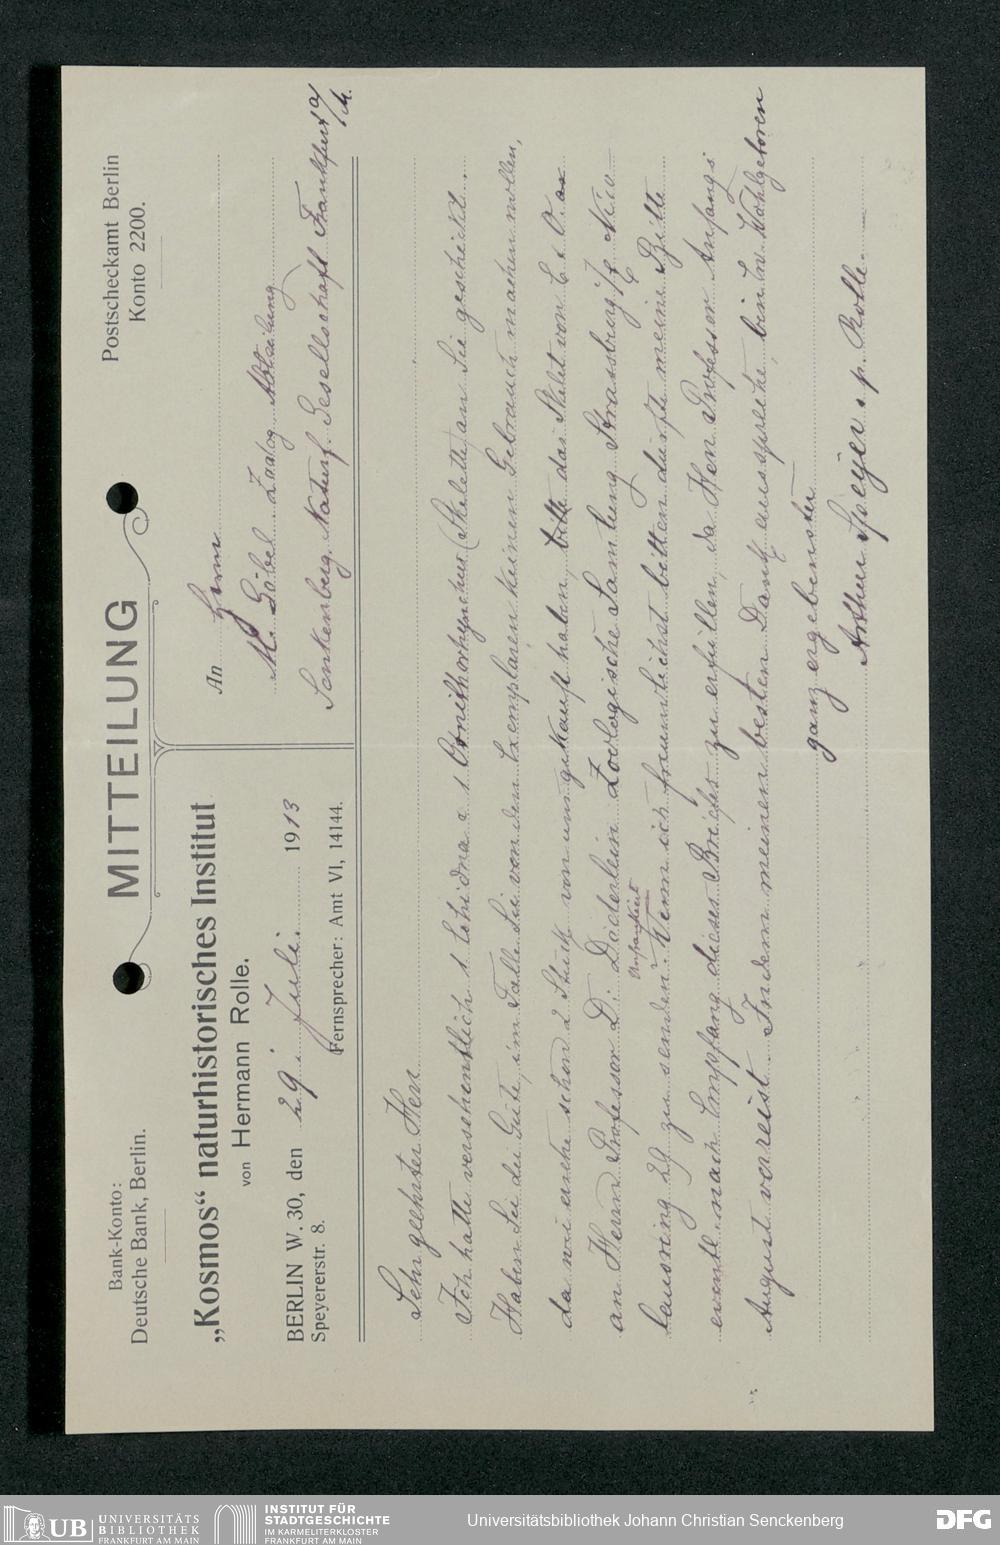 MITTEILUNG
Bank-Konto:
Deutsche Bank, Berlin.
Postscheckamt Berlin
Konto 2200.
„Kosmos“ naturhistorisches Institut
von Hermann Rolle.
BERLIN W. 30, den 29. Juli 1913
Speyererstr. 8.
Fernsprecher: Amt VI, 14144.
An Herrn
M. Göbel Zoolog. Abteilung
Senkenberg. Naturf. Gesellschaft Frankfurt a/M.
Sehr geehrter Herr
Ich hatte versehentlich 1 Echidna u 1 Ornithorhynchus (Skelette) an Sie geschickt.
Haben Sie die Güte, im Falle Sie von den Exemplaren keinen Gebrauch machen wollen,
da wir schon 2 Stück von uns gekauft haben, bitte das Skelet von E. u. O. an
an Herrn Professor Dr. Döderlein Zoologische Samlung Strassburg i/E
unfrankiert
29 zu senden. Wenn ich freundlichst bitten dürfte meine Bitte
eventl. nach Empfang dieses Briefes zu erfüllen, da Herr Professor Anfangs
August verreist. Indem meinen besten Dank ausspreche, bin Ew. Wohlgeboren
ganz ergebenster
Arthur Speyer p. Rolle.
UB UNIVERSITÄTS
BIBLIOTHEK
FRANKFURT AM MAIN
INSTITUT FÜR
STADTGESCHICHTE
IM KARMELITERKLOSTER
FRANKFURT AM MAIN
Universitätsbibliothek Johann Christian Senckenberg
DFG